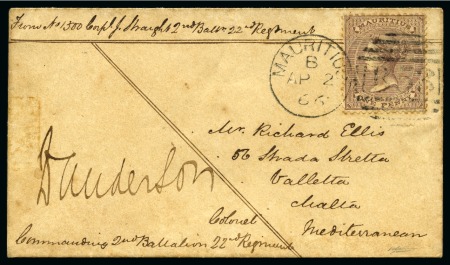 From No 1500 Corpl J. Straight 2nd Battn 22nd Regiment
MAURITIUS
B
AP 2
66
MAURITIUS
PENCE
Mr. Richard Ellis
56 Strada Stretta
Valletta
Malta
Mediterranean
Anderson
Colonel
Commanding 2nd Battalion 22nd Regiment